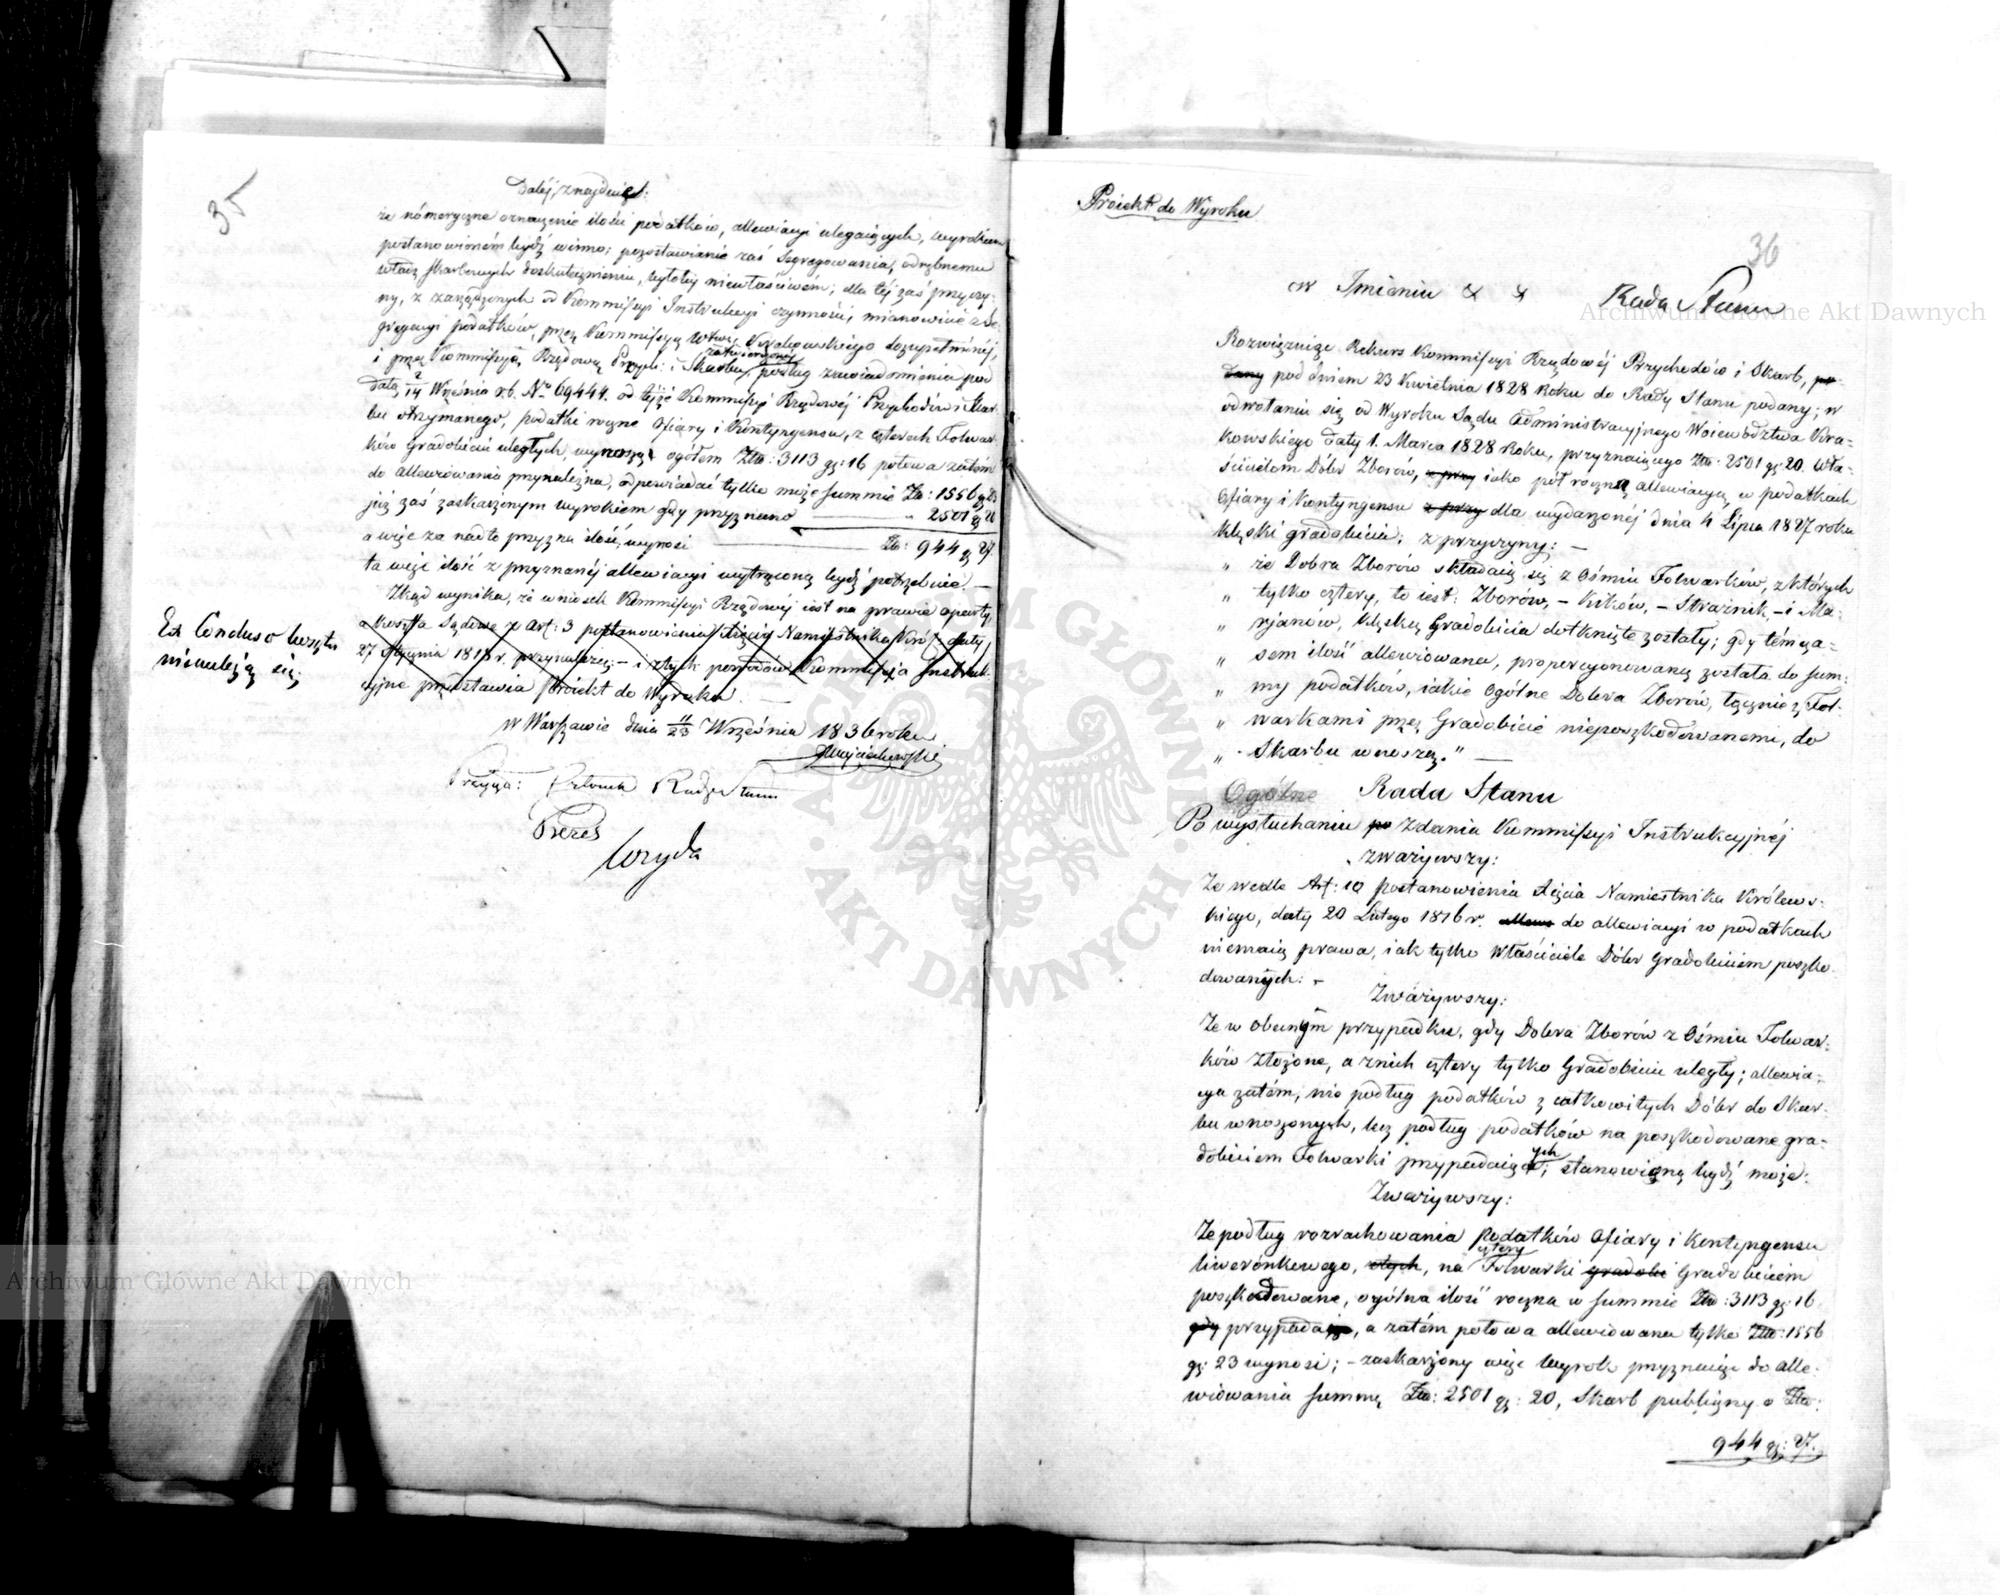 35
Daléj, znajduiąc:
że numeryczne oznaczenie ilości podatków, allewiacyi ulegaiących, wyrokiem
postanowioném bydź winno; pozostawianie zaś segregowania, odrębnemu
władz skarbowych doskutecznieniu, byłoby niewłaściwém; dla téj zaś przyczy-
ny, z zarządzonych od Kommissyi Instrukcyi czynności, mianowicie z Se-
gregacyi podatków, przez Kommissyą Wtwa Krakowskiego dozupełnionéj,
i przez Kommissyą Rządową Przych: i Skarbu zatwierdzonéj podług zawiadomienia pod
datą 2/14 Września r.b. No 69444. od tejże Kommissyi Rządowéj Przychodów i Skar-
bu otrzymanego, podatki roczne Ofiary i Kontyngensu, z czterech Folwar-
ków Gradobiciu uległych, wynoszą ogółem Złп: 3113 gr: 16 połowa zatém
do allewiowania przynależna, odpowiadać tylko może summie Zło: 1556 g 23
już zaś zaskarżonym wyrokiem gdy przyznano — " 2501 g 20
a więc za nadto przyzna ilość, wynosi — Zło: 944 g 27.
ta więc ilość z przyznanéj allewiacyi wytrąconą bydź potrzebnie. —
Zkąd wynika, że wniosek Kommissyi Rządowéj iest na prawie oparty,
a koszta Sądowe z Art: 3 postanowienia Xięcia Namiestnika Król: daty
27 Stycznia 1818 r. przynależą; — i z tych powodów Kommissyia Instruk-
cyjna przedstawia Proiekt do Wyroku. —
Ex Concluso koszta
nienależą się.
w Warszawie dnia 11/23 Września 1836 roku
Wojciechowski
Członek Rady Stanu
Prezes
36
Proiekt do Wyroku
w Imieniu & & Rada Stanu
Rozwiązuiąc Rekurs Kommissyi Rządowéj Przychodów i Skarb, po-
dany pod dniem 23 Kwietnia 1828 Roku do Rady Stanu podany; w
odwołaniu się od Wyroku Sądu Administracyjnego Woiewództwa Kra-
kowskiego daty 1. Marca 1828 Roku, przyznaiącego Złp. 2501 gr 20. Wła-
ścicielom Dóbr Zborów, z przy iako pół roczną allewiacyą w podatkach
Ofiary i Kontyngensu z przy dla wydarzonéj dnia 4 Lipca 1827 roku
klęski gradobicia; z przyczyny: —
" że Dobra Zborów składaią się z Ośmiu Folwarków, z których
" tylko cztery, to iest: Zborów, — Kików, — Strażnik, — i Ma-
" rjanów, klęską Gradobicia dotknięte zostały; gdy témcza-
" sem ilość allewiowana, proporcyonowaną została do sum-
" my podatków, iakie Ogólne Dobra Zborów, łącznie z Fol-
" warkami przez Gradobicie nieposzkodowanemi, do
" Skarbu wnoszą." —
Ogólne Rada Stanu
Po wysłuchaniu po Zdania Kommissyi Instrukcyjnéj
zważywszy:
Że wedle Art: 10 postanowienia Xięcia Namiestnika Królews-
kiego, daty 20 Lutego 1816 r. allewe do allewiacyi w podatkach
niemaią prawa, iak tylko Właściciele Dóbr gradobiciem poszko-
dowanych: —
Zważywszy:
Że w obecnym przypadku, gdy Dobra Zborów z Ośmiu Folwar-
ków złożone, a z nich cztery tylko Gradobiciu uległy; allewia-
cya zatém, nie podług podatków z całkowitych Dóbr do Skar-
bu wnoszonych, lecz podług podatków na poszkodowane gra-
dobiciem Folwarki przypadaiących; stanowioną bydź może:
Zważywszy:
Że podług rozrachowania Podatków Ofiary i Kontyngensu
liwerónkowego, z tych, na cztery Folwarki gradobi Gradobiciem
poszkodowane, ogólna ilość roczna w summie Złp: 3113 gr: 16.
gdy przypada, a zatém połowa allewiowana tylko Złp: 1556
gr: 23 wynosi; — zaskarżony więc Wyrok przyznaiąc do alle-
wiowania summę Złp: 2501 gr: 20, Skarb publiczny o Złp:
944 gr: 27.
Archiwum Główne Akt Dawnych
Archiwum Główne Akt Dawnych
ARCHIWUM GŁÓWNE AKT DAWNYCH